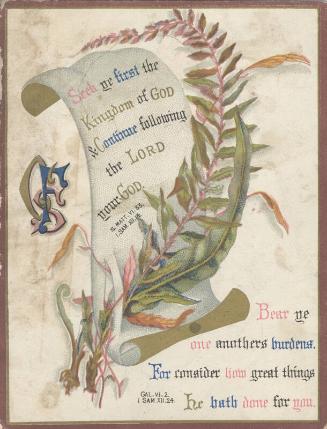 Seek ye first the
Kingdom of GOD
& Continue following
the LORD
your GOD.
S. MATT. VI. 33.
I. SAM. XII. 20.
GFS
Bear ye
one anothers burdens.
For consider how great things
He hath done for you.
GAL. VI. 2.
I SAM. XII. 24.